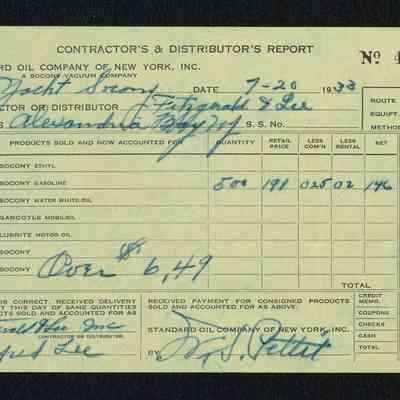 CONTRACTOR'S & DISTRIBUTOR'S REPORT
RD OIL COMPANY OF NEW YORK, INC. Nº 4
A SOCONY-VACUUM COMPANY
Yacht Socony DATE 7-20 1933
CTOR OR DISTRIBUTOR Fitzgerald & Lee ROUTE
S Alexandria Bay NY S. S. No. EQUIPM
METHOD
PRODUCTS SOLD AND NOW ACCOUNTED FOR QUANTITY RETAIL PRICE LESS COM'N LESS RENTAL NET
SOCONY ETHYL
SOCONY GASOLINE 500 191 025 02 146
SOCONY WATER WHITE OIL
GARGOYLE MOBILOIL
LUBRITE MOTOR OIL
SOCONY
SOCONY Over $ 6,49
TOTAL
IS CORRECT. RECEIVED DELIVERY
T THIS DAY OF SAME QUANTITIES
CTS SOLD AND ACCOUNTED FOR AS
& Lee Inc
CONTRACTOR OR DISTRIBUTOR
Lee
RECEIVED PAYMENT FOR CONSIGNED PRODUCTS
SOLD AND NOW ACCOUNTED FOR AS ABOVE.
STANDARD OIL COMPANY OF NEW YORK, INC.
BY S. Pettit
CREDIT MEMO.
COUPONS
CHECKS
CASH
TOTAL